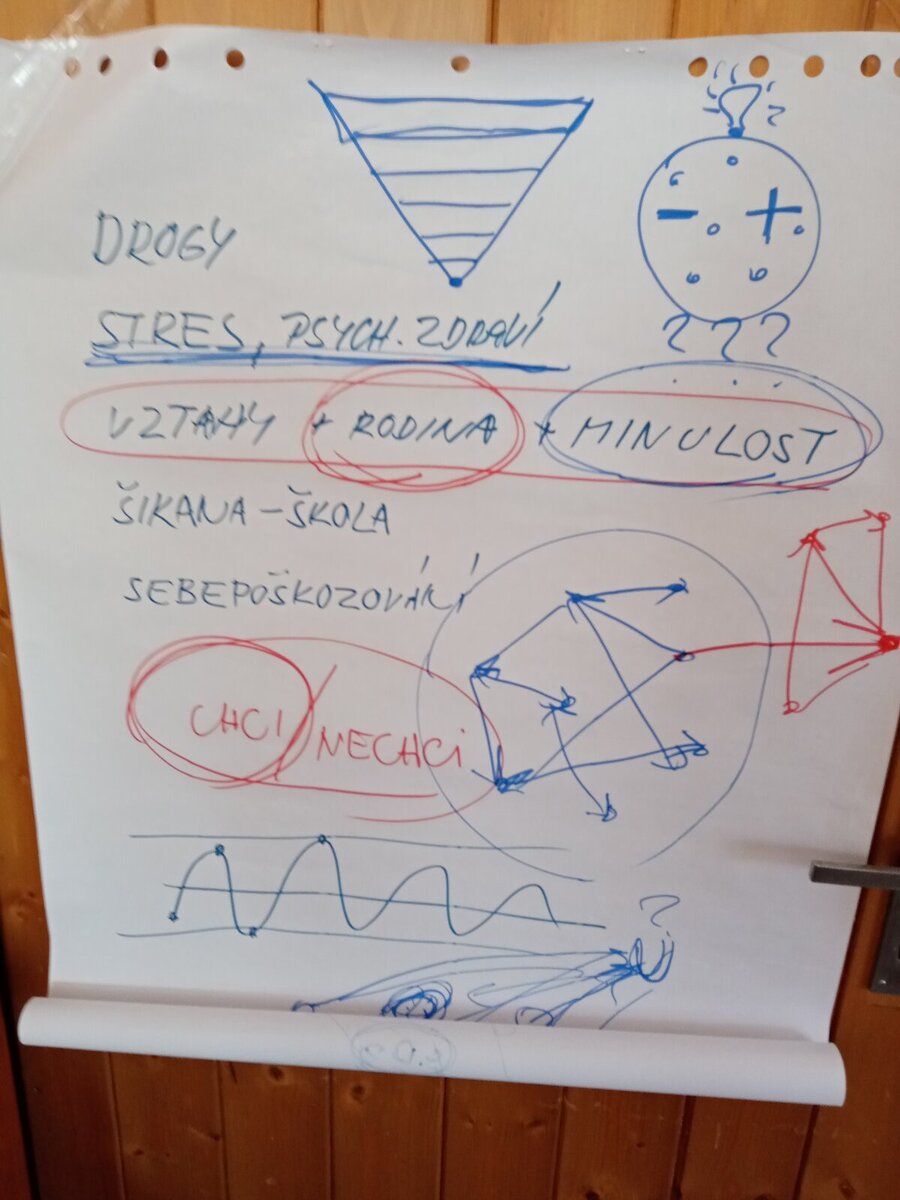 DROGY
STRES, PSYCH. ZDRAVÍ
? ? ?
VZTAHY + RODINA + MINULOST
ŠIKANA – ŠKOLA
SEBEPOŠKOZOVÁNÍ
CHCI / NECHCI
?